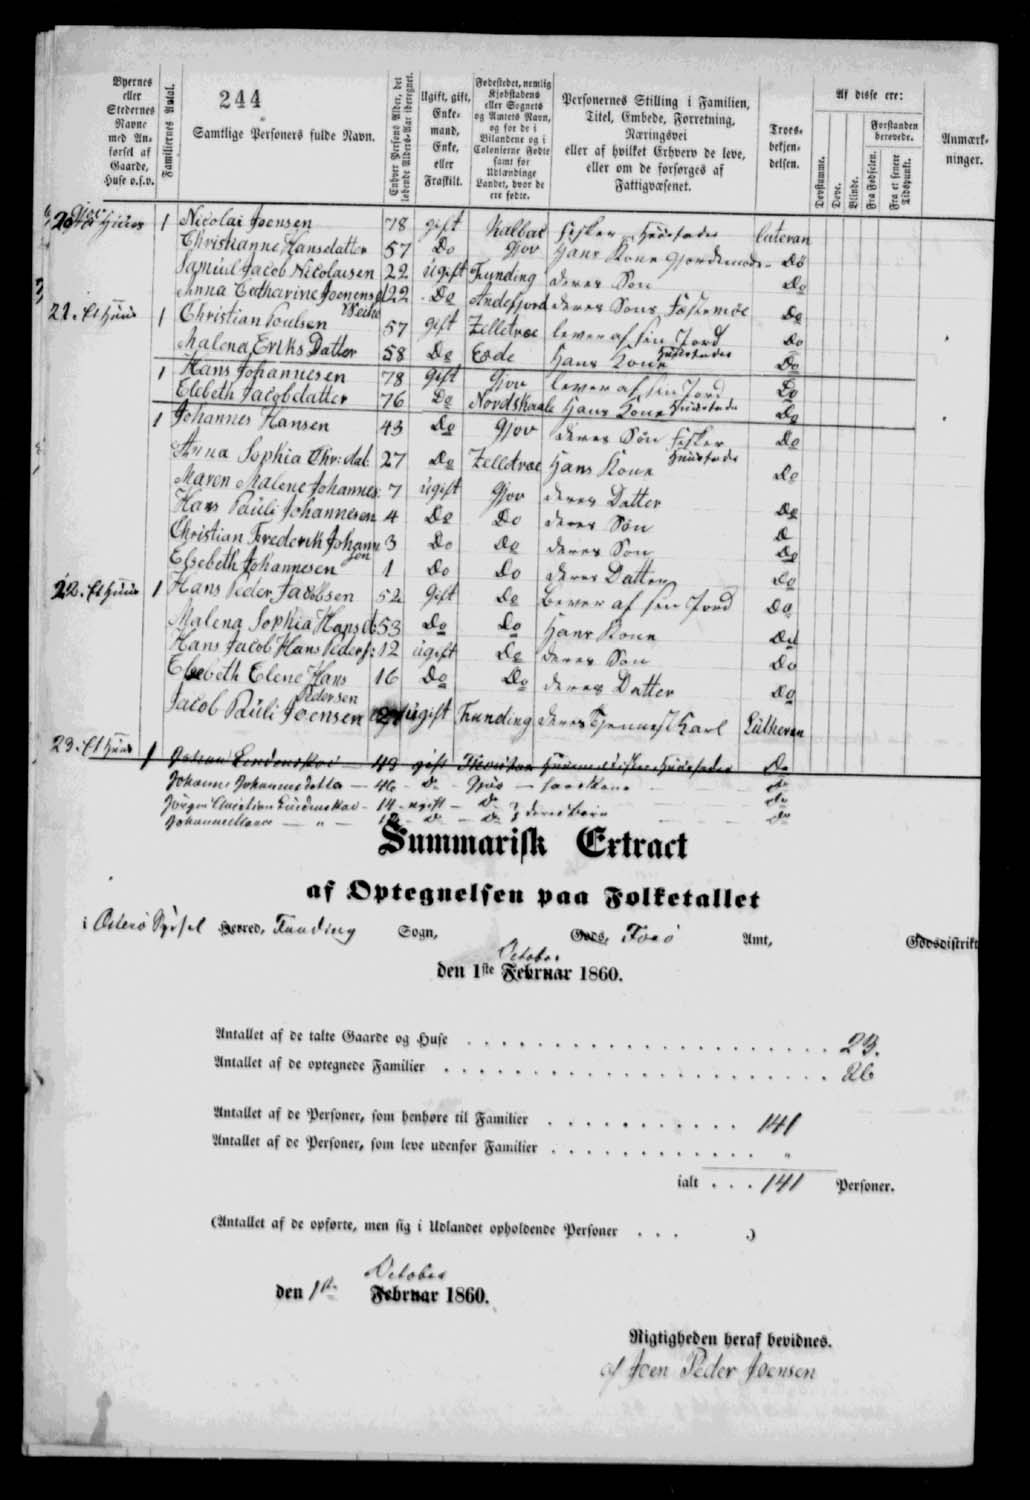 Byernes eller Stedernes Navne med Anførsel af Gaarde, Huse o.s.v.
Familiernes Antal.
244
Samtlige Personers fulde Navn.
Enhver Persons Alder, det løbende Alders-Aar iberegnet.
Ugift, gift, Enkemand, Enke, eller Fraskilt.
Fødestedet, nemlig Kjøbstadens eller Sognets og Amtets Navn, og for de i Bilandene og i Colonierne Fødte samt for Udlændinge Landet, hvor de ere fødte.
Personernes Stilling i Familien, Titel, Embede, Forretning, Næringsvei eller af hvilket Erhverv de leve, eller om de forsørges af Fattigvæsenet.
Troesbekjendelsen.
Af disse ere:
Døvstumme.
Døve.
Blinde.
Forstanden berøvede.
Fra Fødselen.
Fra et senere Tidspunkt.
Anmærkninger.
Gjov
20 Et Huus 1 Nicolai Joensen 78 gift Kalbac Fisker Huusfader Luteran
Christianne Hansdatter 57 Do Gjov Hans Kone Do
Samuel Jacob Nicolaisen 22 ugift Funding deres Søn Do
Anna Catharine Joenens d 22 Do Andefjord deres Sons Do
21. Et Huus 1 Christian Poulsen 57 gift Zelletræ lever af sin Jord Huusfader Do
Malena Eriks Datter 58 Do Eøde Hans Kone Do
1 Hans Johannesen 78 gift Gjov lever af sin Jord Huusfader Do
Elebeth Jacobdatter 76 Do Nordskaale Hans Kone Do
1 Johannes Hansen 43 Do Gjov deres Søn Fisker Huusfader Do
Anna Sophia Chr: dat. 27 Do Zelletræ Hans Kone Do
Maren Malene Johannes 7 ugift Gjov deres Datter Do
Hans Pauli Johannesen 4 Do Do deres Søn D
Christian Frederik Johannesen 3 Do Do deres Son Do
Elsebeth Johannesen 1 Do Do deres Datter Do
22. Et Huus 1 Hans Peder Jacobsen 52 gift Do Lever af sin Jord Do
Malena Sophia Hans d. 53 Do Do Hans Kone Do
Hans Jacob Hans Peders: 12 ugift Do deres Son Do
Elsebeth Elene Hans Pedersen 16 Do Do deres Datter Do
Jacob Pauli Joensen 21 ugift Funding deres Tjenneste Karl Lutheran
23. Et Huus 1 49 gift Huusfader Do
Johanne Johannesdatter — 46 — D. — Gjov — do
Jørgen Christian — 14 — ugift — D. deres børn do
— " — D. — D. do
Summarisk Extract
af Optegnelsen paa Folketallet
i Østerø Syssel Herred, Funding Sogn, Gods, Færø Amt, Godsdistrikt
October
den 1ste Februar 1860.
Antallet af de talte Gaarde og Huse . . . 23.
Antallet af de optegnede Familier . . . 26
Antallet af de Personer, som henhøre til Familier . . . 141
Antallet af de Personer, som leve udenfor Familier . . . "
ialt . . . 141 Personer.
(Antallet af de opførte, men sig i Udlandet opholdende Personer . . . .)
October
den 1ste Februar 1860.
Rigtigheden heraf bevidnes.
af Joen Peder Joensen